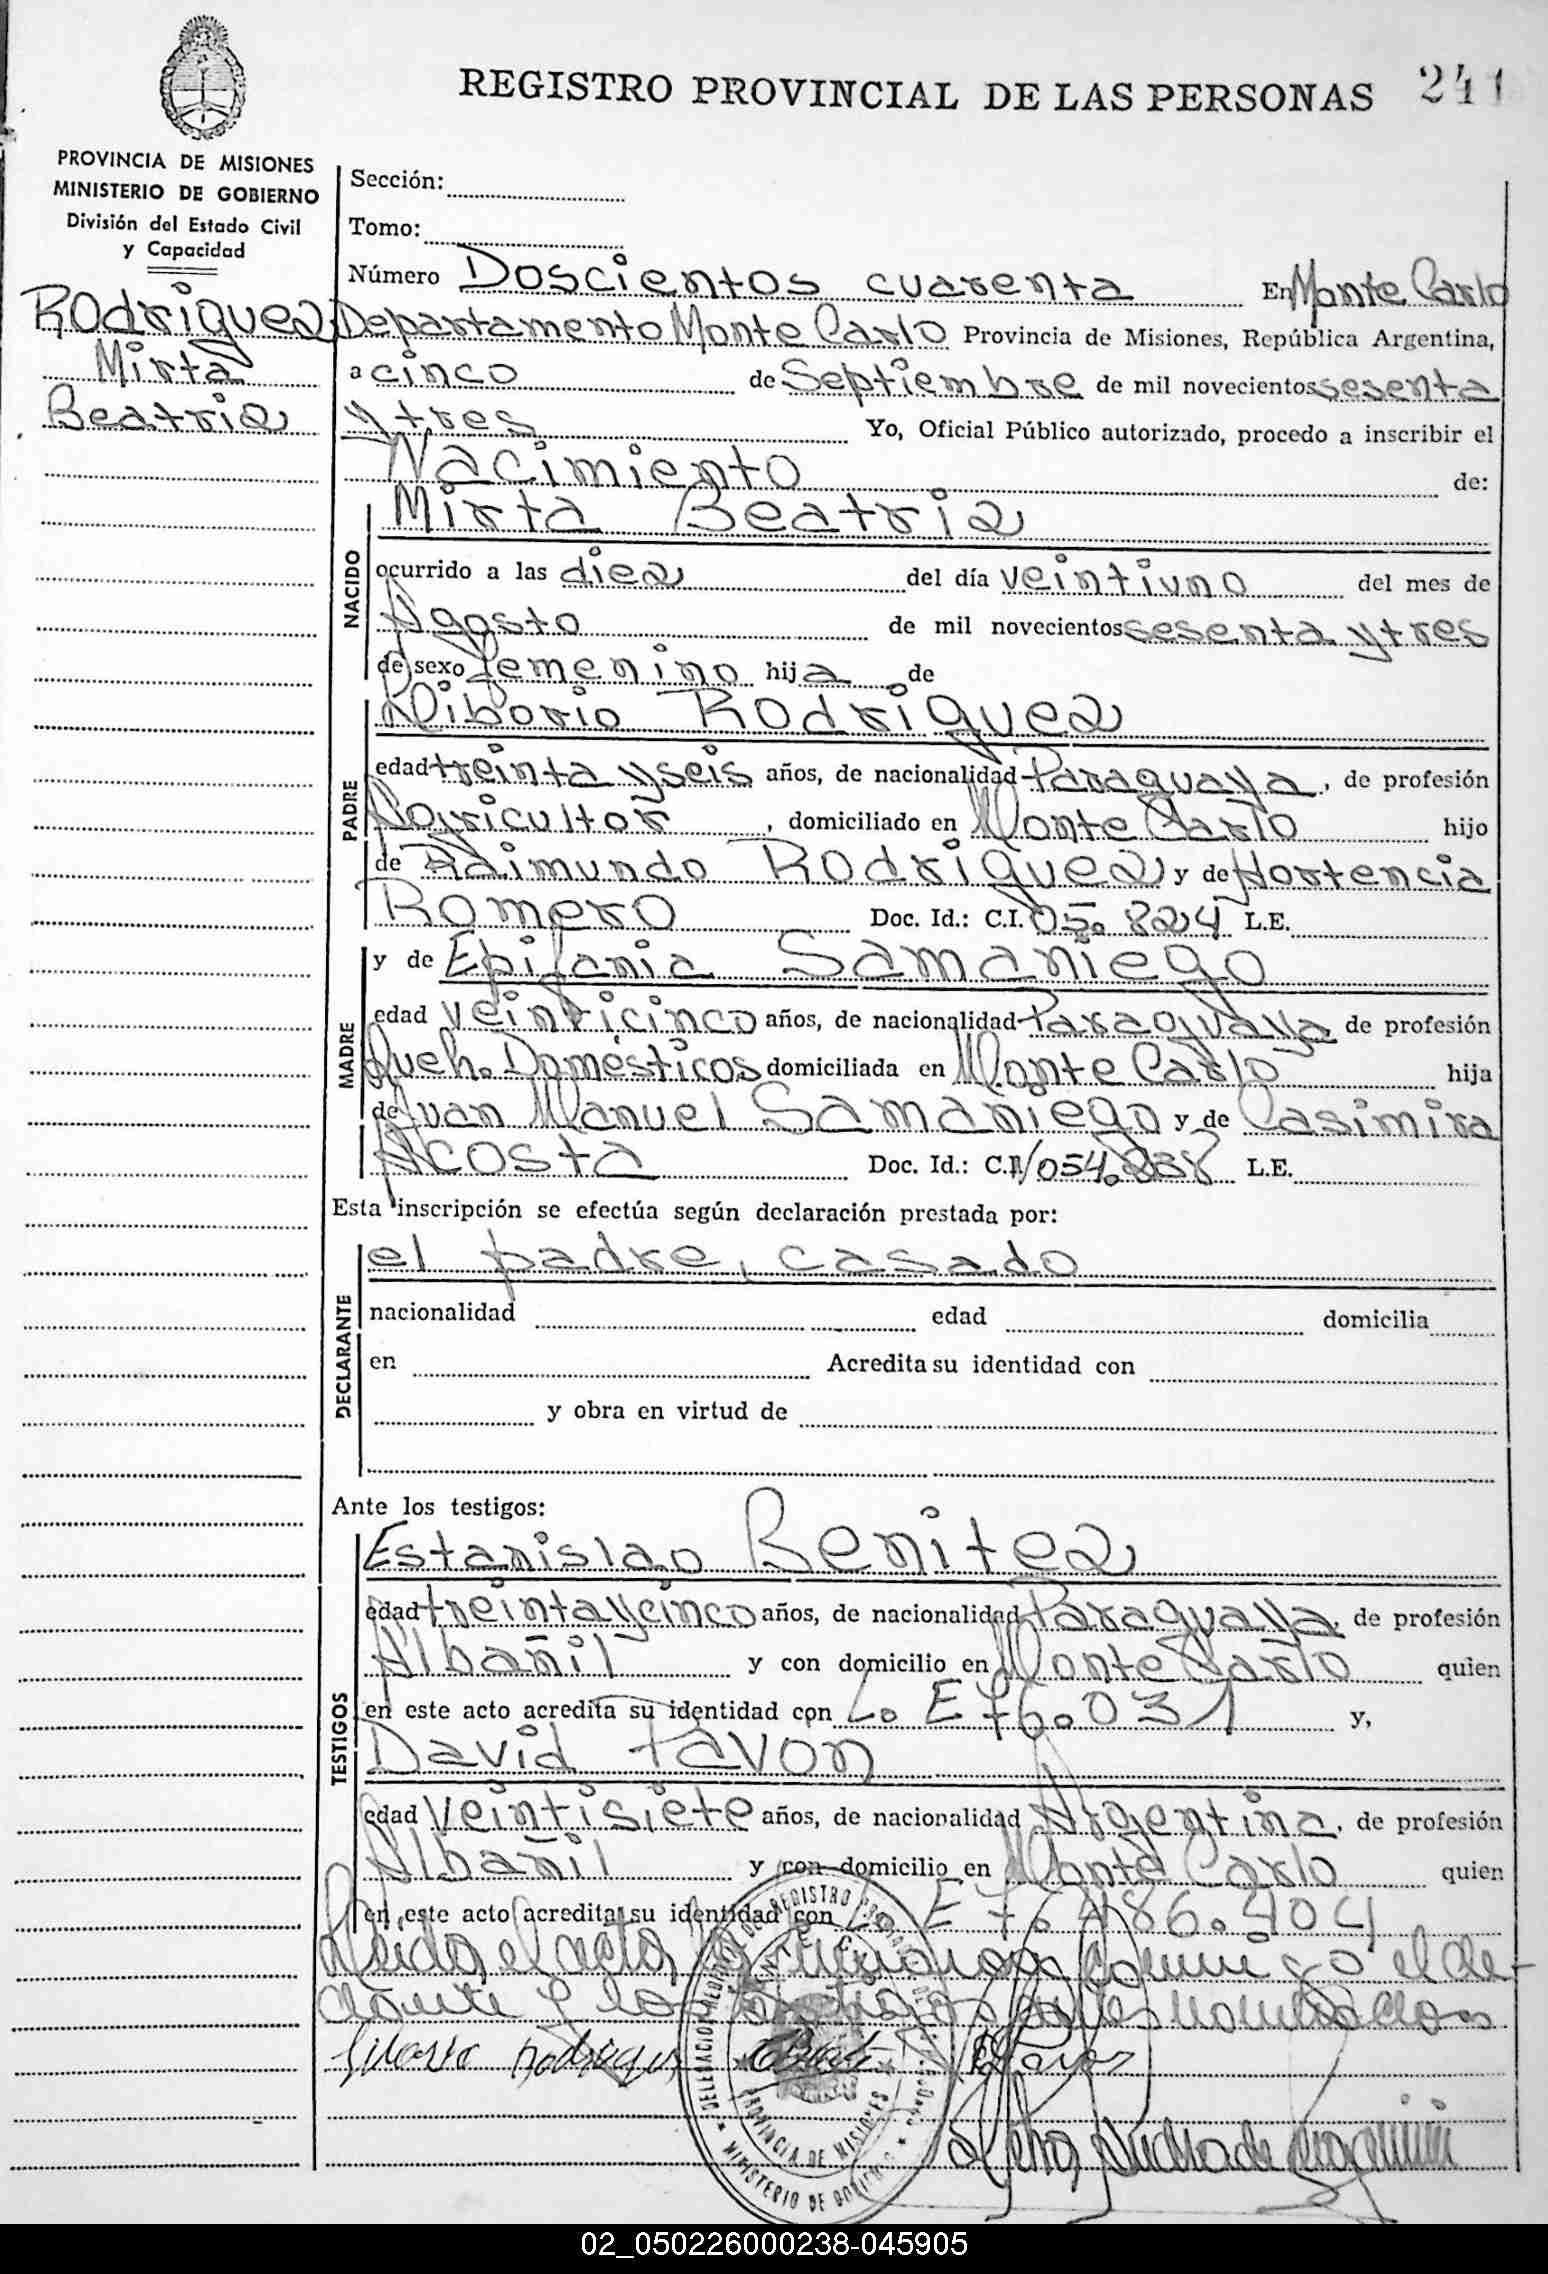 REGISTRO PROVINCIAL DE LAS PERSONAS 241
PROVINCIA DE MISIONES
MINISTERIO DE GOBIERNO
División del Estado Civil
y Capacidad
Rodriguez
Mirta
Beatriz
Sección:
Tomo:
Número Doscientos cuarenta En Monte Carlo
Departamento Monte Carlo Provincia de Misiones, República Argentina,
a cinco de Septiembre de mil novecientos sesenta
y tres Yo, Oficial Público autorizado, procedo a inscribir el
Nacimiento de:
NACIDO
Mirta Beatriz
ocurrido a las diez del día veintiuno del mes de
Agosto de mil novecientos sesenta y tres
de sexo femenino hija de
PADRE
Liborio Rodriguez
edad treinta y seis años, de nacionalidad Paraguaya, de profesión
Agricultor, domiciliado en Monte Carlo hijo
de Raimundo Rodriguez y de Hortencia
Romero Doc. Id.: C.I. 05.824 L.E.
MADRE
y de Epifania Samaniego
edad veinticinco años, de nacionalidad Paraguaya, de profesión
Queh. Domésticos domiciliada en Monte Carlo hija
de Juan Manuel Samaniego y de Casimira
Acosta Doc. Id.: C.I. L.E.
Esta inscripción se efectúa según declaración prestada por:
DECLARANTE
el padre, casado
nacionalidad edad domicilia
en Acredita su identidad con
y obra en virtud de
Ante los testigos:
TESTIGOS
Estanislao Benitez
edad treinta y cinco años, de nacionalidad Paraguaya, de profesión
Albañil y con domicilio en Monte Carlo quien
en este acto acredita su identidad con L. E 76.031 y,
David Pavon
edad veintisiete años, de nacionalidad Argentina, de profesión
Albañil y con domicilio en Monte Carlo quien
en este acto acredita su identidad con L. E 7.486.404
Leida el acta, conmigo el de-
y los testigos antes nombrados
Liborio Rodriguez
PROVINCIA DE MISIONES
MINISTERIO DE GOBIERNO
02_050226000238-045905